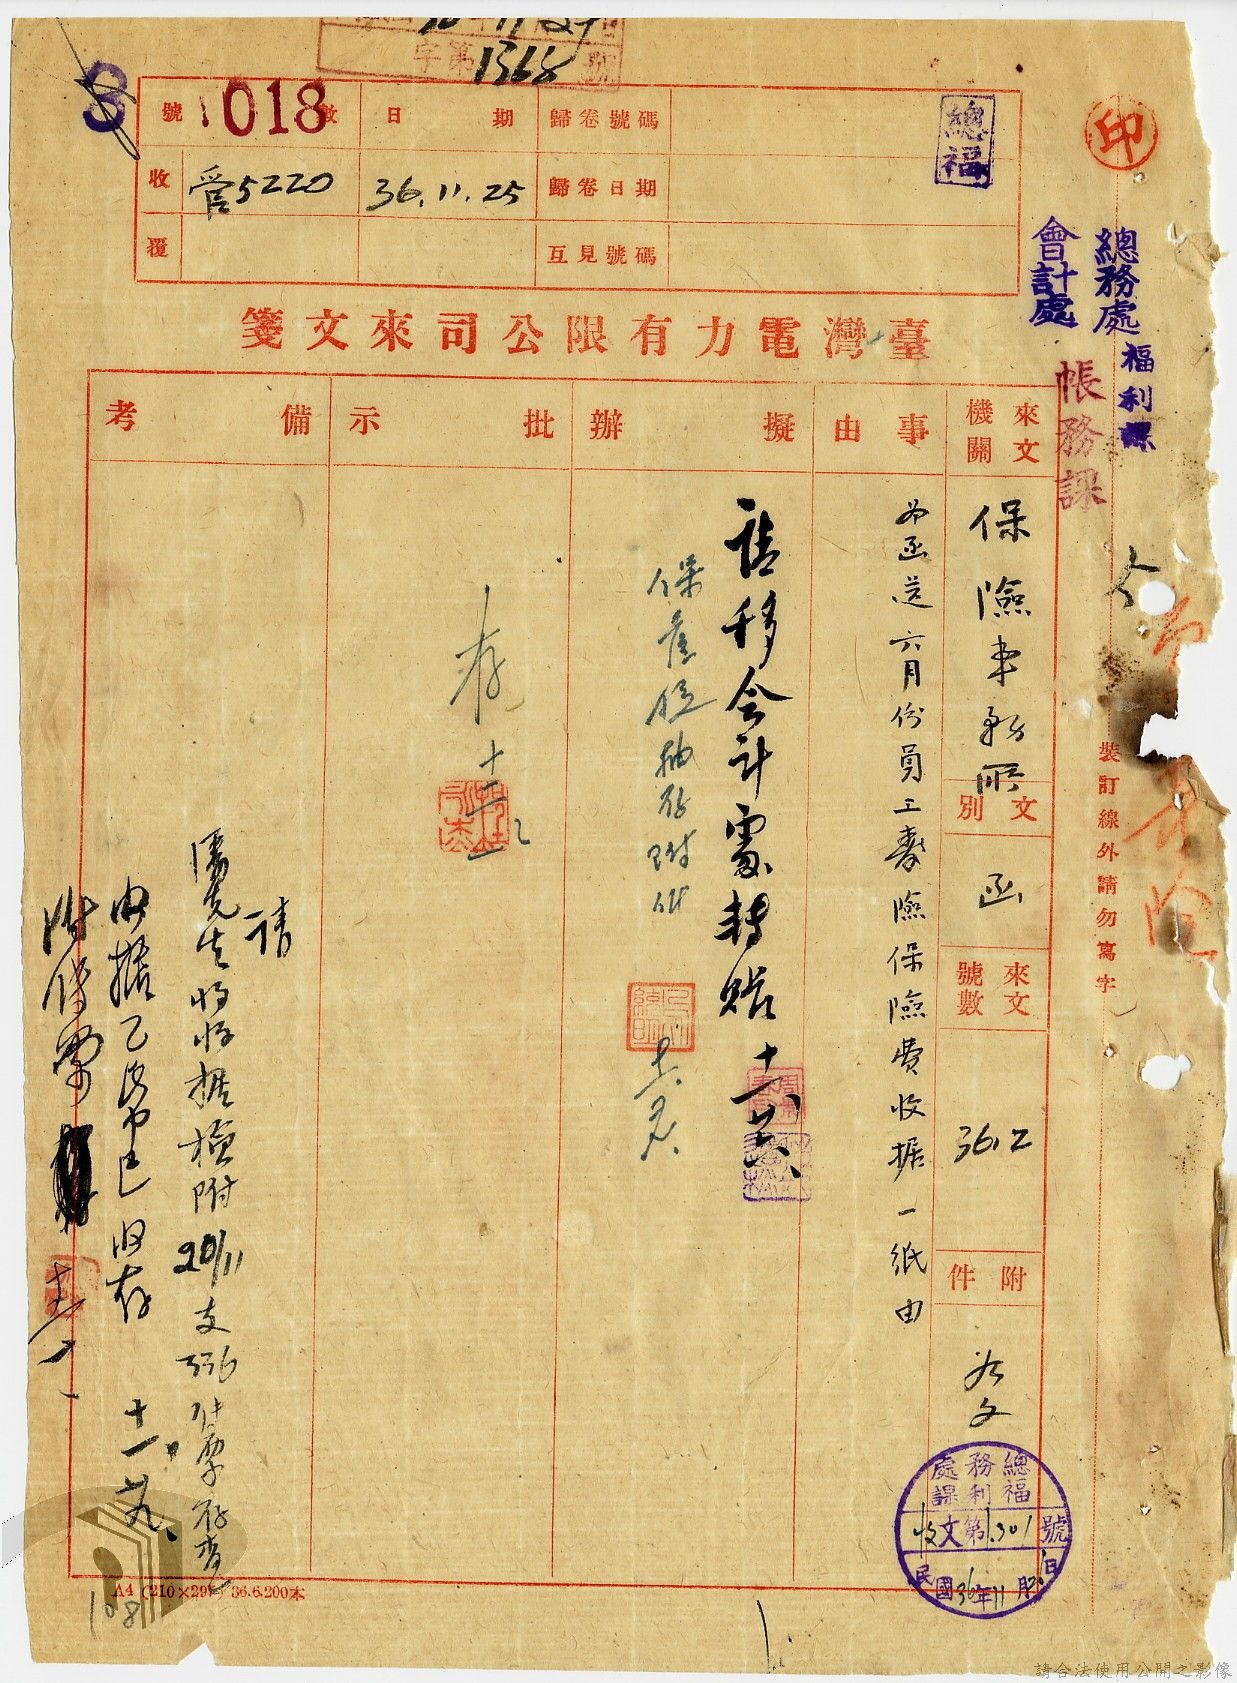 字第1368號
018
號數 日期 歸卷號碼
收 管5220 36.11.25 歸卷日期
覆 互見號碼
總福
印
總務處福利課
會計處
帳務課
臺灣電力有限公司來文箋
來文機關
保險事務所
文別
函
來文號數
36.2
附件
如文
事由
為函送六月份員工壽險保險費收據一紙由
擬辦
請移會計處轉賬 十一、廿六、
批示
存
備考
請
先生將收據檢附20/11支336傳票存查
收據乙紙已收存
附傳票
裝訂線外請勿寫字
總務處
福利課
收文第1301號
民國36年11月
A4 (210×297) 36.6.200本
108
請合法使用公開之影像